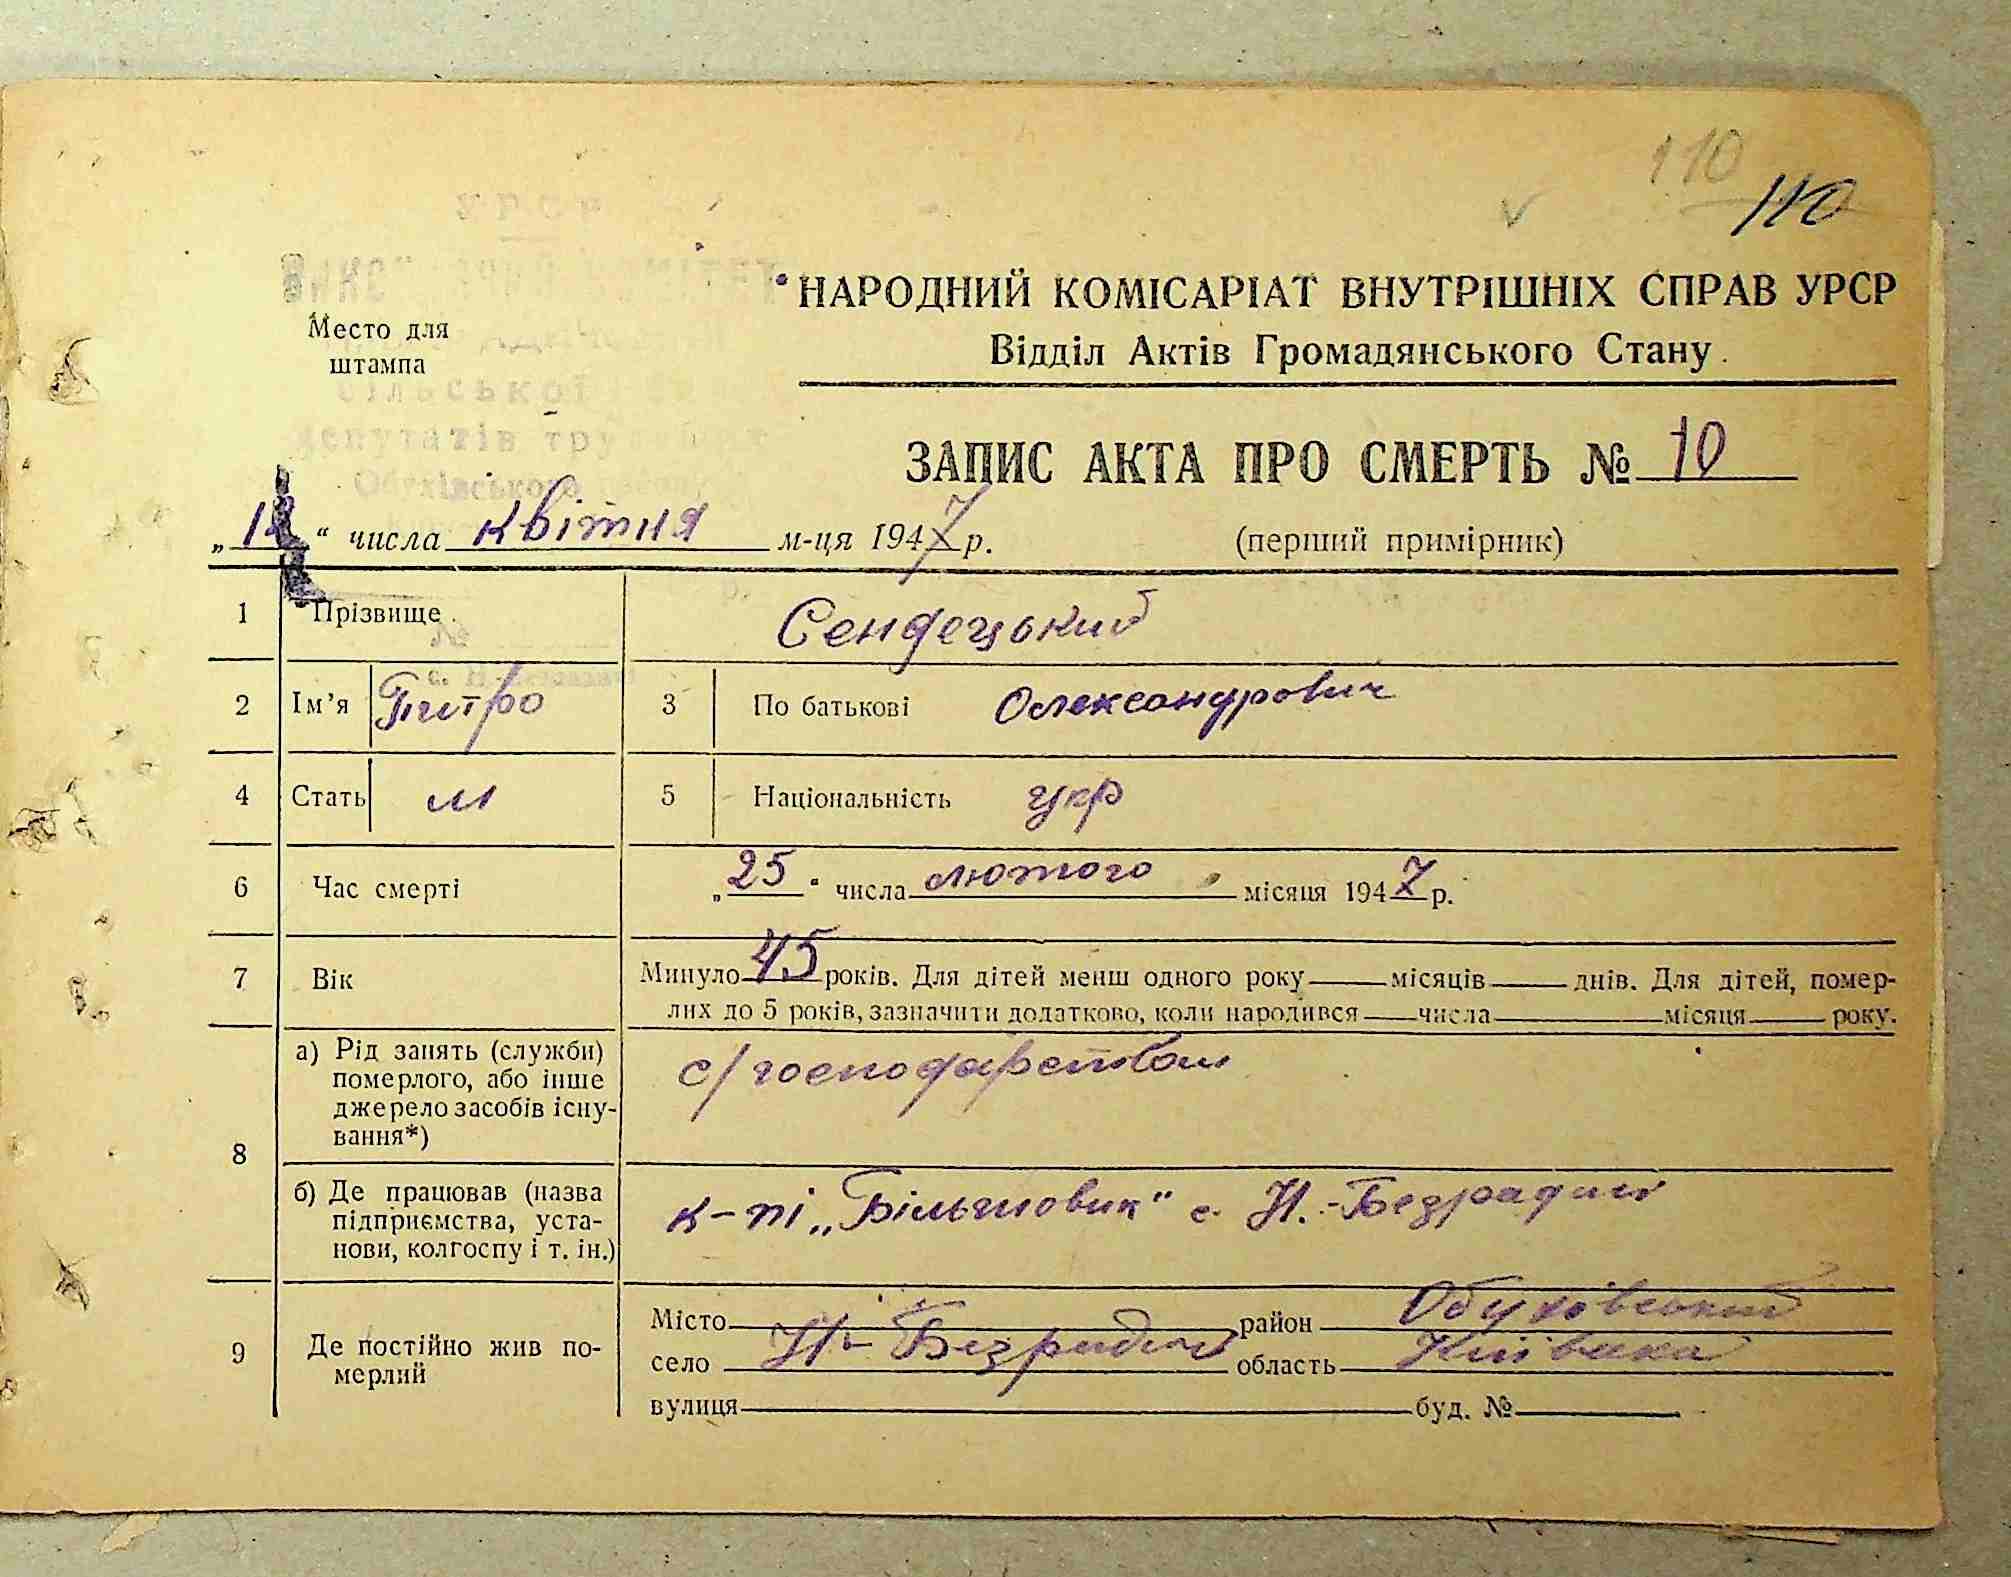 110
110
УРСР
Место для
штампа
НАРОДНИЙ КОМІСАРІАТ ВНУТРІШНІХ СПРАВ УРСР
Відділ Актів Громадянського Стану
сільської
депутатів
Обухівського
ЗАПИС АКТА ПРО СМЕРТЬ № 10
„ “ числа квітня м-ця 1947 р.
(перший примірник)
1 Прізвище Сендецький
2 Ім’я Питро 3 По батькові Олександрович
4 Стать м 5 Національність укр
6 Час смерті „25“ числа лютого місяця 1947 р.
7 Вік Минуло 45 років. Для дітей менш одного року місяців днів. Для дітей, помер-
лих до 5 років, зазначити додатково, коли народився числа місяця року.
8 а) Рід занять (служби)
померлого, або інше
джерело засобів існу-
вання*)
с/господарством
б) Де працював (назва
підприємства, уста-
нови, колгоспу і т. ін.)
к-пі „Більшовик" с. Н.-Безрадичі
9 Де постійно жив по-
мерлий
Місто район Обухівський
село Н-Безрадичі область Київська
вулиця буд. №